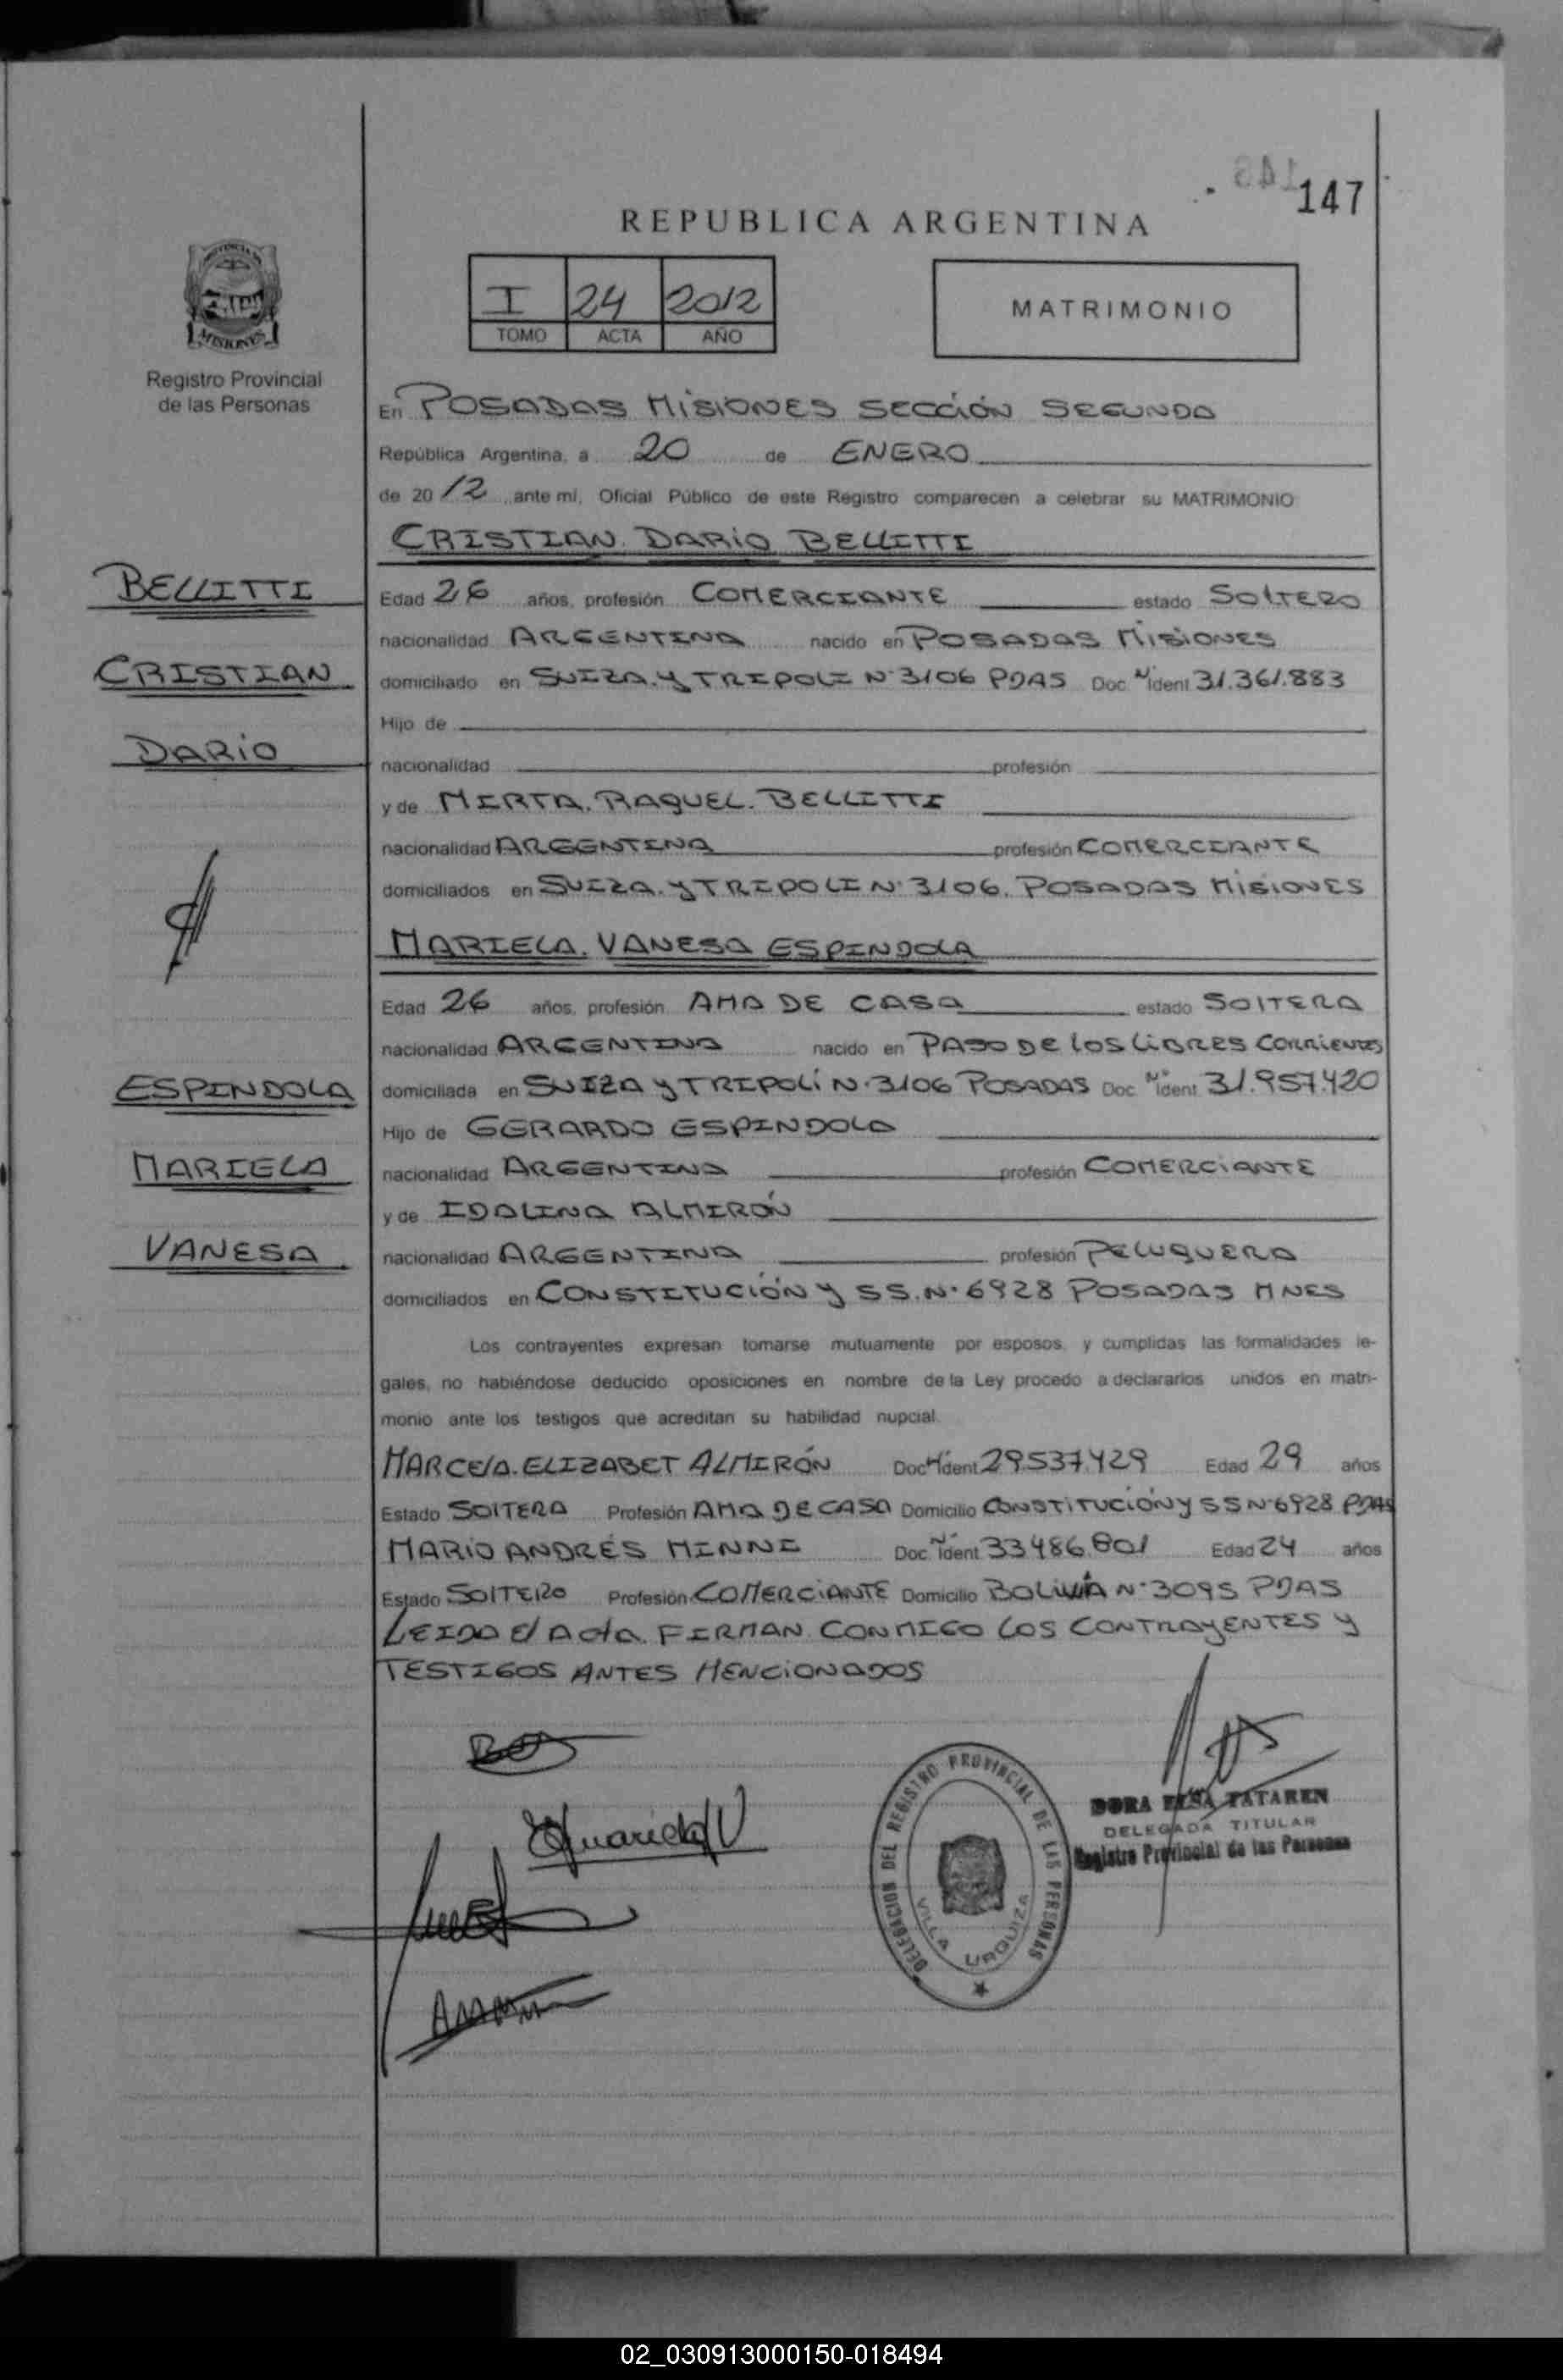 147
REPUBLICA ARGENTINA
I 24 2012
TOMO ACTA AÑO
MATRIMONIO
PROVINCIA DE
MISIONES
Registro Provincial
de las Personas
En POSADAS MISIONES SECCIÓN SEGUNDA
República Argentina, a 20 de ENERO
de 2012 ante mí, Oficial Público de este Registro comparecen a celebrar su MATRIMONIO
CRISTIAN DARIO BELLITTI
BELLITTI
Edad 26 años, profesión COMERCIANTE estado SOLTERO
nacionalidad ARGENTINA nacido en POSADAS MISIONES
CRISTIAN
domiciliado en SUIZA Y TRIPOLI N° 3106 PDAS Doc. N° Ident 31.361.883
Hijo de
DARIO
nacionalidad profesión
y de MIRTA. RAQUEL. BELLITTI
nacionalidad ARGENTINA profesión COMERCIANTE
domiciliados en SUIZA. Y TRIPOLI N° 3106. POSADAS MISIONES
MARIELA. VANESA ESPINDOLA
Edad 26 años, profesión AMA DE CASA estado SOLTERA
nacionalidad ARGENTINA nacido en PASO DE LOS LIBRES CORRIENTES
ESPINDOLA
domiciliada en SUIZA Y TRIPOLÍ N° 3106 POSADAS Doc. N° Ident 31.957.420
Hijo de GERARDO ESPINDOLA
MARIELA
nacionalidad ARGENTINA profesión COMERCIANTE
y de IDALINA ALMIRÓN
VANESA
nacionalidad ARGENTINA profesión PELUQUERA
domiciliados en CONSTITUCIÓN Y SS. N° 6928 POSADAS MNES
Los contrayentes expresan tomarse mutuamente por esposos, y cumplidas las formalidades le-
gales, no habiéndose deducido oposiciones en nombre de la Ley procedo a declararlos unidos en matri-
monio ante los testigos que acreditan su habilidad nupcial.
MARCELA. ELIZABET ALMIRÓN Doc. N° Ident 29537.429 Edad 29 años
Estado SOLTERA Profesión AMA DE CASA Domicilio CONSTITUCIÓN Y SS N° 6928 PDAS
MARIO ANDRÉS MINNI Doc. N° Ident 33486.801 Edad 24 años
Estado SOLTERO Profesión COMERCIANTE Domicilio BOLIVIA N° 3095 PDAS
LEIDA el Acta. FIRMAN CONMIGO LOS CONTRAYENTES Y
TESTIGOS ANTES MENCIONADOS
DELEGACION DEL REGISTRO PROVINCIAL DE LAS PERSONAS
VILLA URQUIZA
DORA ELSA TATAREN
DELEGADA TITULAR
Registro Provincial de las Personas
02_030913000150-018494